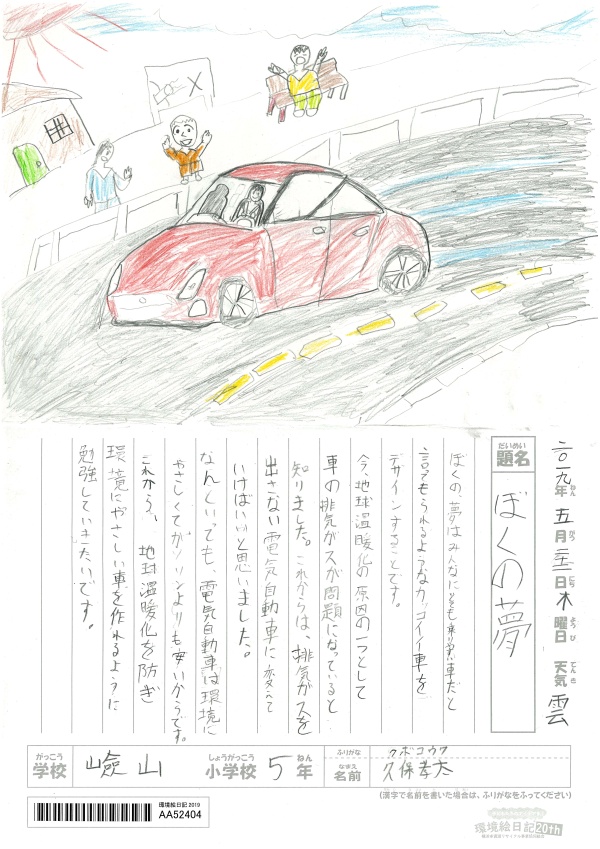 二〇一九年 五月 三十日 木曜日 天気 雲
ねん がつ にち よう び てんき
だいめい
題名
ぼくの夢
ぼくの夢はみんなにとても乗り易い車だと
言ってもらえるようなカッコイイ車を
デザインすることです。
今、地球温暖化の原因の一つとして
車の排気ガスが問題になっていると
知りました。これからは、排気ガスを
出さない電気自動車に変えて
いけばいいと思いました。
なんといっても、電気自動車は環境に
やさしくてガソリンよりも安いからです。
これから、地球温暖化を防ぎ
環境にやさしい車を作れるように
勉強していきたいです。
がっこう しょうがっこう ねん ふりがな クボコウタ
学校 嶮山 小学校 5年 なまえ 名前 久保孝太
(漢字で名前を書いた場合は、ふりがなをふってください)
環境絵日記 2019
AA52404
環境絵日記20th